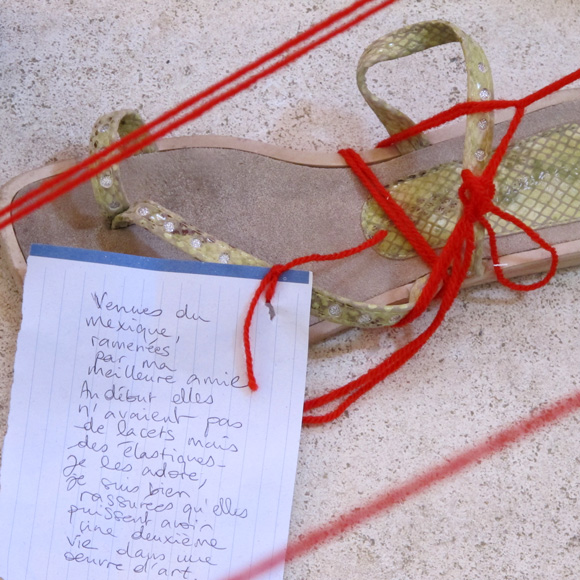 Venues du
mexique,
ramenées
par ma
meilleure amie
Au début elles
n'avaient pas
de lacets mais
des élastiques.
Je les adore,
je suis bien
rassurées qu'elles
puissent avoir
une deuxième
vie dans une
oeuvre d'art.